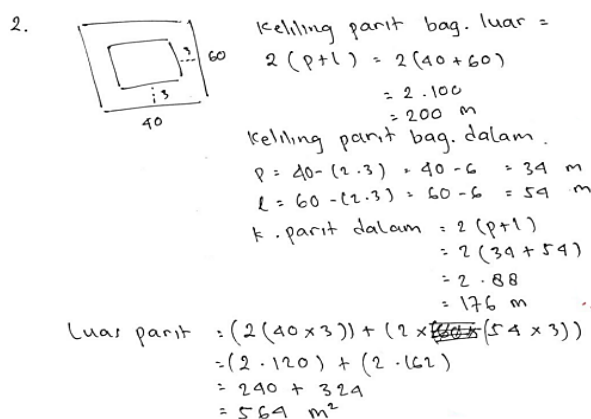 2.
Keliling parit bag. luar =
3 60
2 (p+l) = 2(40+60)
= 2.100
i3
= 200 m
40
Keliling parit bag. dalam.
P = 40-(2.3) = 40-6 = 34 m
l = 60-(2.3) = 60-6 = 54 m
k. parit dalam = 2(p+l)
= 2(34+54)
= 2.88
= 176 m
Luas parit = (2(40×3)) + (2×(54×3))
=(2.120) + (2.162)
= 240 + 324
= 564 m²